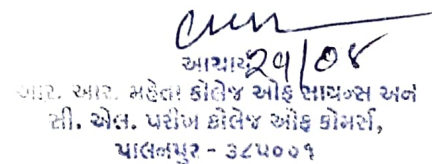 આચાર્ય
29/08
આર. આર. મહેતા કોલેજ ઓફ સાયન્સ અને
સી. એલ. પરીખ કોલેજ ઓફ કોમર્સ,
પાલનપુર - ૩૮૫૦૦૧